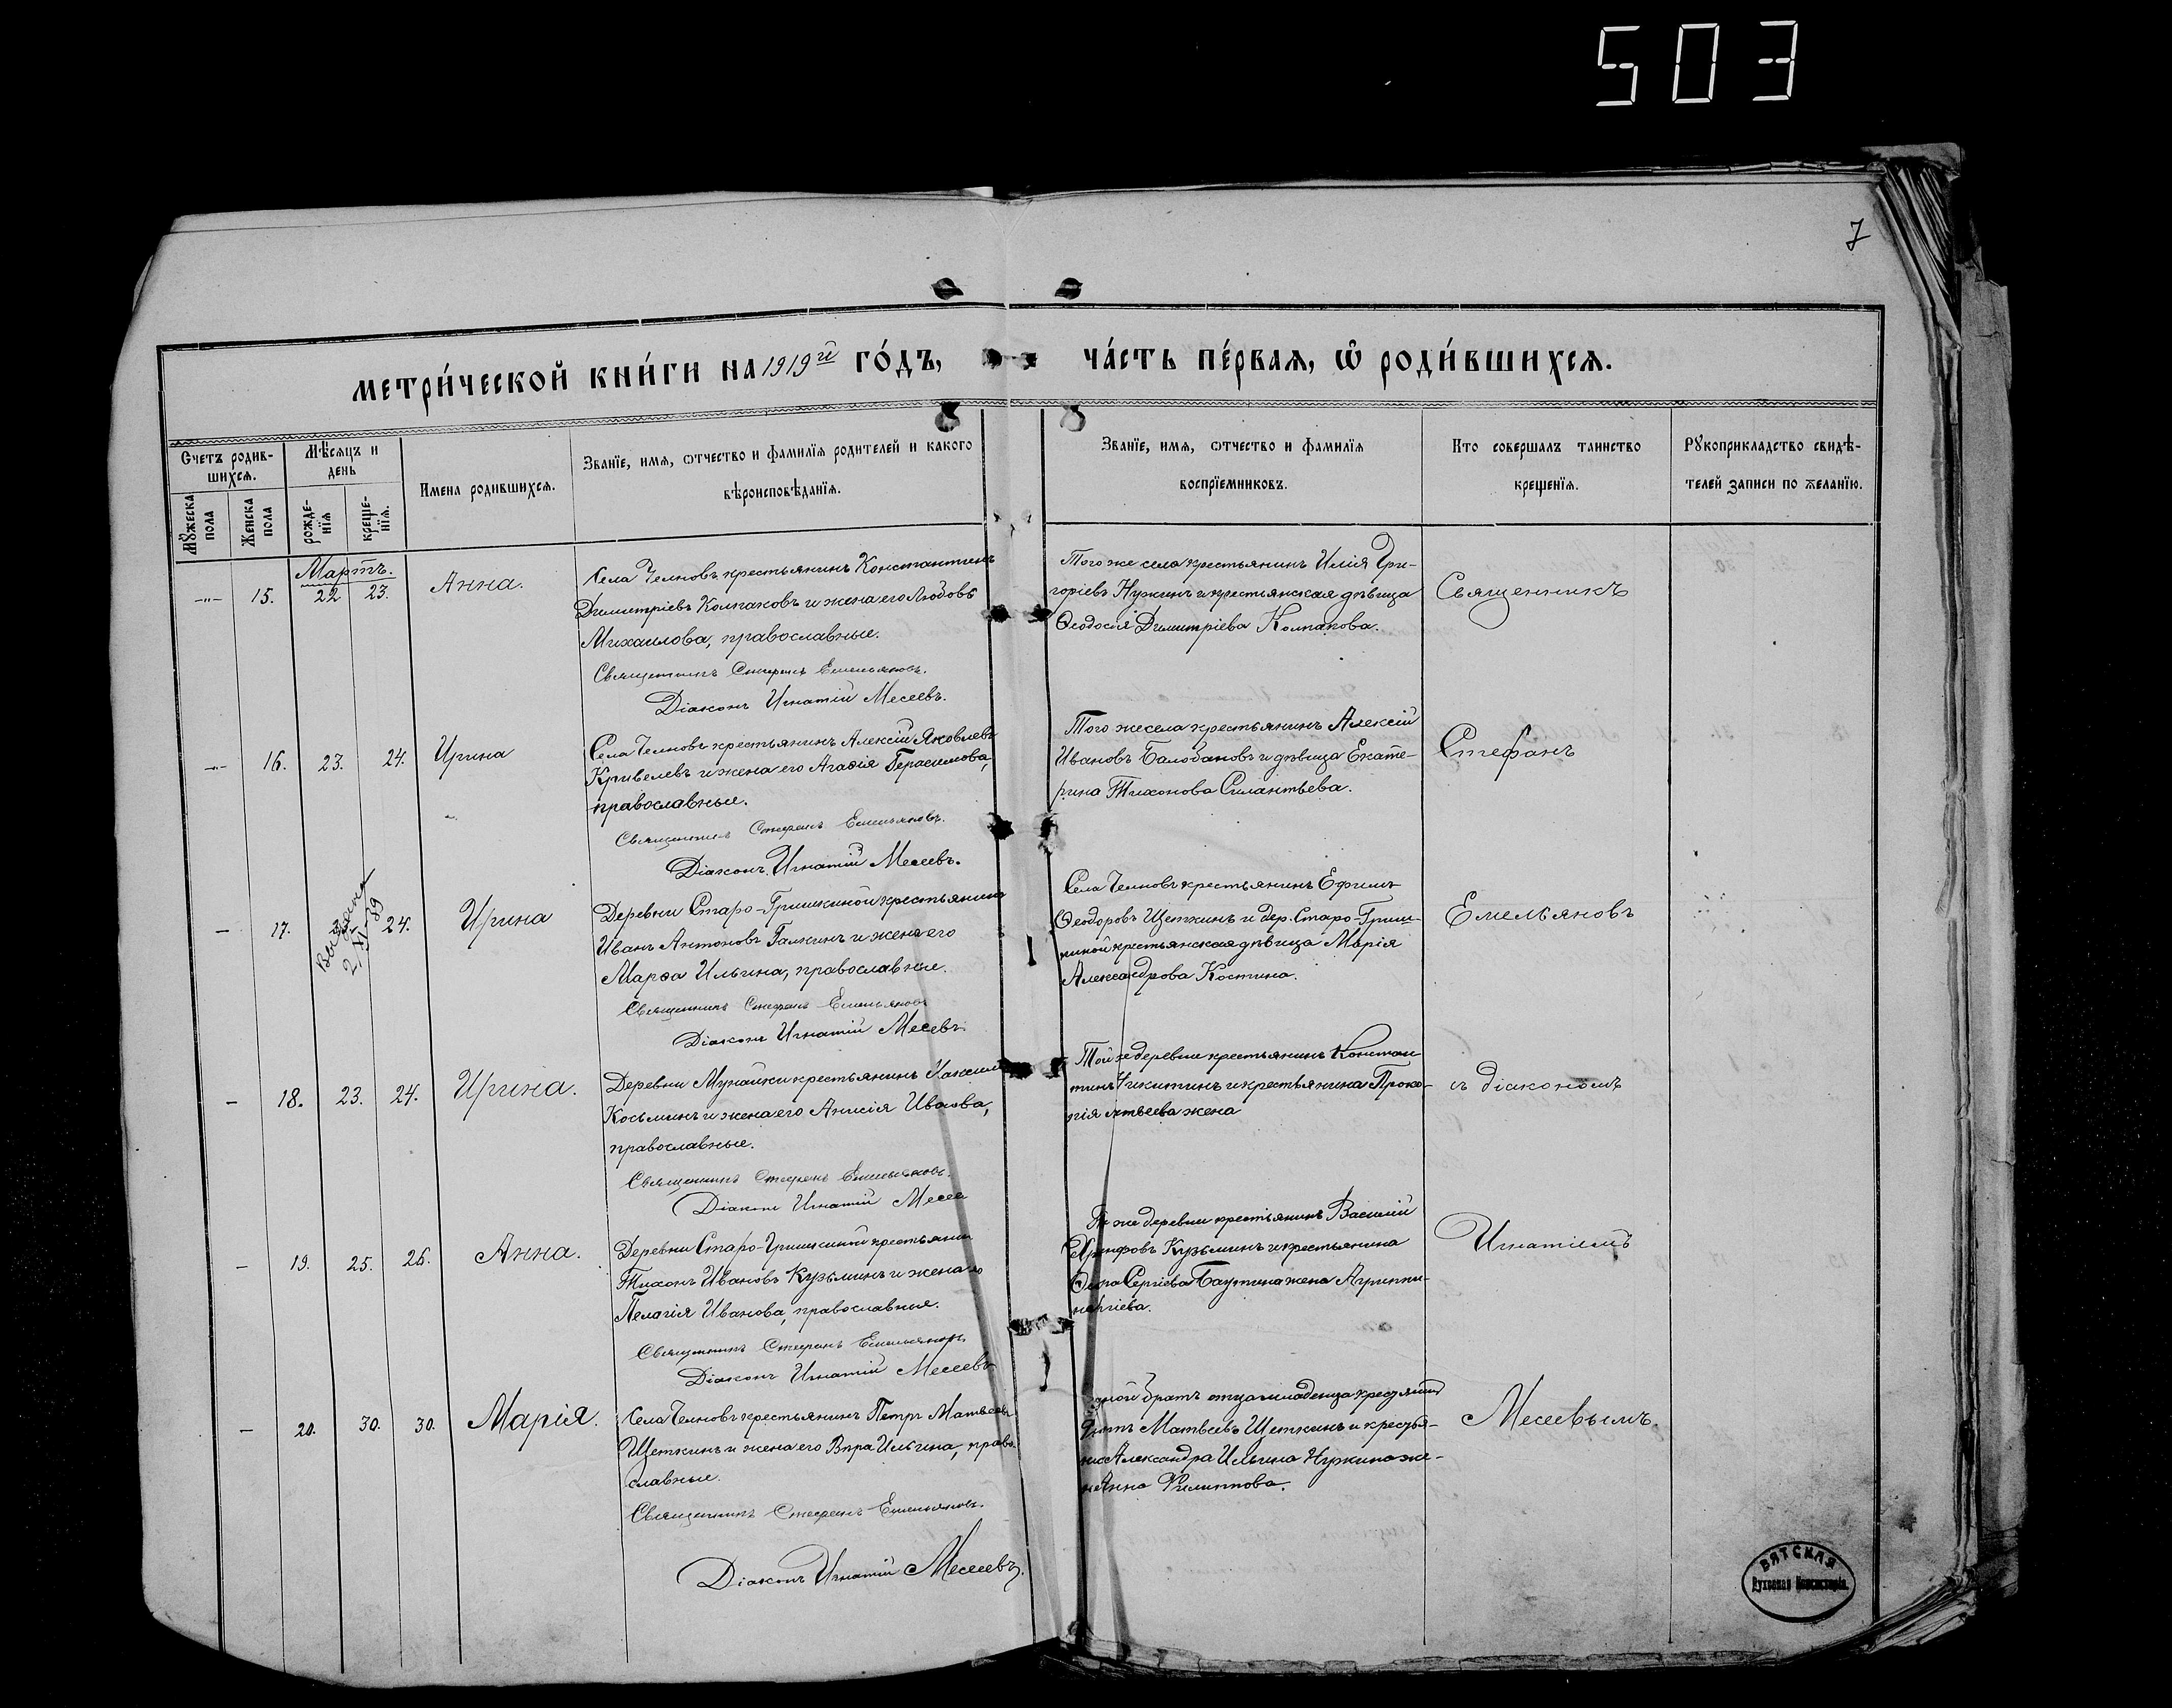 503
7
МЕТРИ́ЧЕСКОЙ КНИ́ГИ НА 1919й ГО́ДЪ, ЧА́СТЬ ПЕ́РВАЯ, Ѡ РОДИ́ВШИХСЯ.
Счетъ родив-
шихся.
Мѣсяцъ и
день
Мꙋжеска пола
Женска пола
рожде-
нїя
креще-
нїя.
Имена родившихся.
Званїе, имя, ѿчество и фамилїя родителей и какого
вѣроисповѣданїя.
Званїе, имя, ѿчество и фамилїя
воспрїемниковъ.
Кто совершалъ таинство
крещенїя.
Рꙋкоприкладство свидѣ-
телей записи по желанїю.
Мартъ.
-"- 15. 22 23. Анна.
Села Челновъ крестьянинъ Константинъ
Димитріевъ Колпаковъ и жена его Любовь
Михаилова, православные.
Священникъ Стефанъ Емельяновъ.
Діаконъ Игнатій Месеевъ.
Того же села крестьянинъ Илія Гри-
горіевъ Нужинъ и крестьянская дѣвица
Ѳеодосія Димитріева Колпакова.
Священникъ
-"- 16. 23. 24. Ирина
Села Челновъ крестьянинъ Алексій Яковлевъ
Кривелевъ и жена его Агаѳія Герасимова,
православные.
Священникъ Стефанъ Емельяновъ.
Діаконъ Игнатій Месеевъ.
Того же села крестьянинъ Алексій
Ивановъ Балобановъ и дѣвица Екате-
рина Тихонова Силантьева.
Стефанъ
- 17. 24. Ирина
2/XI-89
Деревни Старо-Гришкиной крестьянинъ
Иванъ Антоновъ Галкинъ и жена его
Марѳа Ильина, православные.
Священникъ Стефанъ Емельяновъ
Діаконъ Игнатій Месеевъ.
Села Челновъ крестьянинъ Ефимъ
Ѳеодоровъ Щеткинъ и дер. Старо-Гриш-
киной крестьянская дѣвица Марія
Александрова Костина.
Емельяновъ
- 18. 23. 24. Ирина.
Деревни Мунайки крестьянинъ
Косьминъ и жена его Анисія Иванова,
православные.
Священникъ Стефанъ Емельяновъ.
Діаконъ Игнатій Месее
Той же деревни крестьянинъ Констан
тинъ Никитинъ и крестьянина Проко-
пія жена
съ діакономъ
- 19. 25. 26. Анна.
Деревни Старо-Гришкиной крестьянин
Тихонъ Ивановъ Кузьминъ и жена его
Пелагія Иванова, православные.
Священникъ Стефанъ Емельяновъ.
Діаконъ Игнатій Месеевъ
же деревни крестьянинъ Василій
Кузьминъ и крестьянина
Сергіева жена Агриппи-
Игнатіемъ
- 20. 30. 30. Марія.
Села Челновъ крестьянинъ Петръ Матвеевъ
Щеткинъ и жена его Вѣра Ильина, право-
славные.
Священникъ Стефанъ Емельяновъ.
Діаконъ Игнатій Месеевъ.
братъ отца младенца крестьянинъ
Матвеевъ Щеткинъ и крестья-
Александра Ильина Нужина же-
на Анна Филиппова.
Месеевымъ.
ВЯТСКАЯ
Духовная Консисторія.